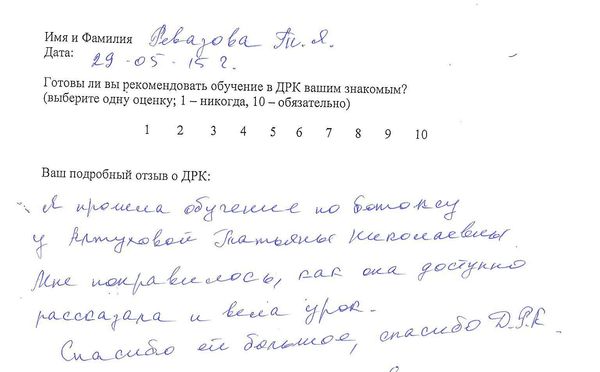 Имя и Фамилия Ревазова Т. Я.
Дата: 29-05-15 г.
Готовы ли вы рекомендовать обучение в ДРК вашим знакомым?
(выберите одну оценку; 1 – никогда, 10 – обязательно)
1 2 3 4 5 6 7 8 9 10
Ваш подробный отзыв о ДРК:
Я прошла обучение по ботоксу
у Алтуховой Татьяны Николаевны
Мне понравилось, как она доступно
рассказала и вела урок.
Спасибо ей большое, спасибо Д.Р.К.